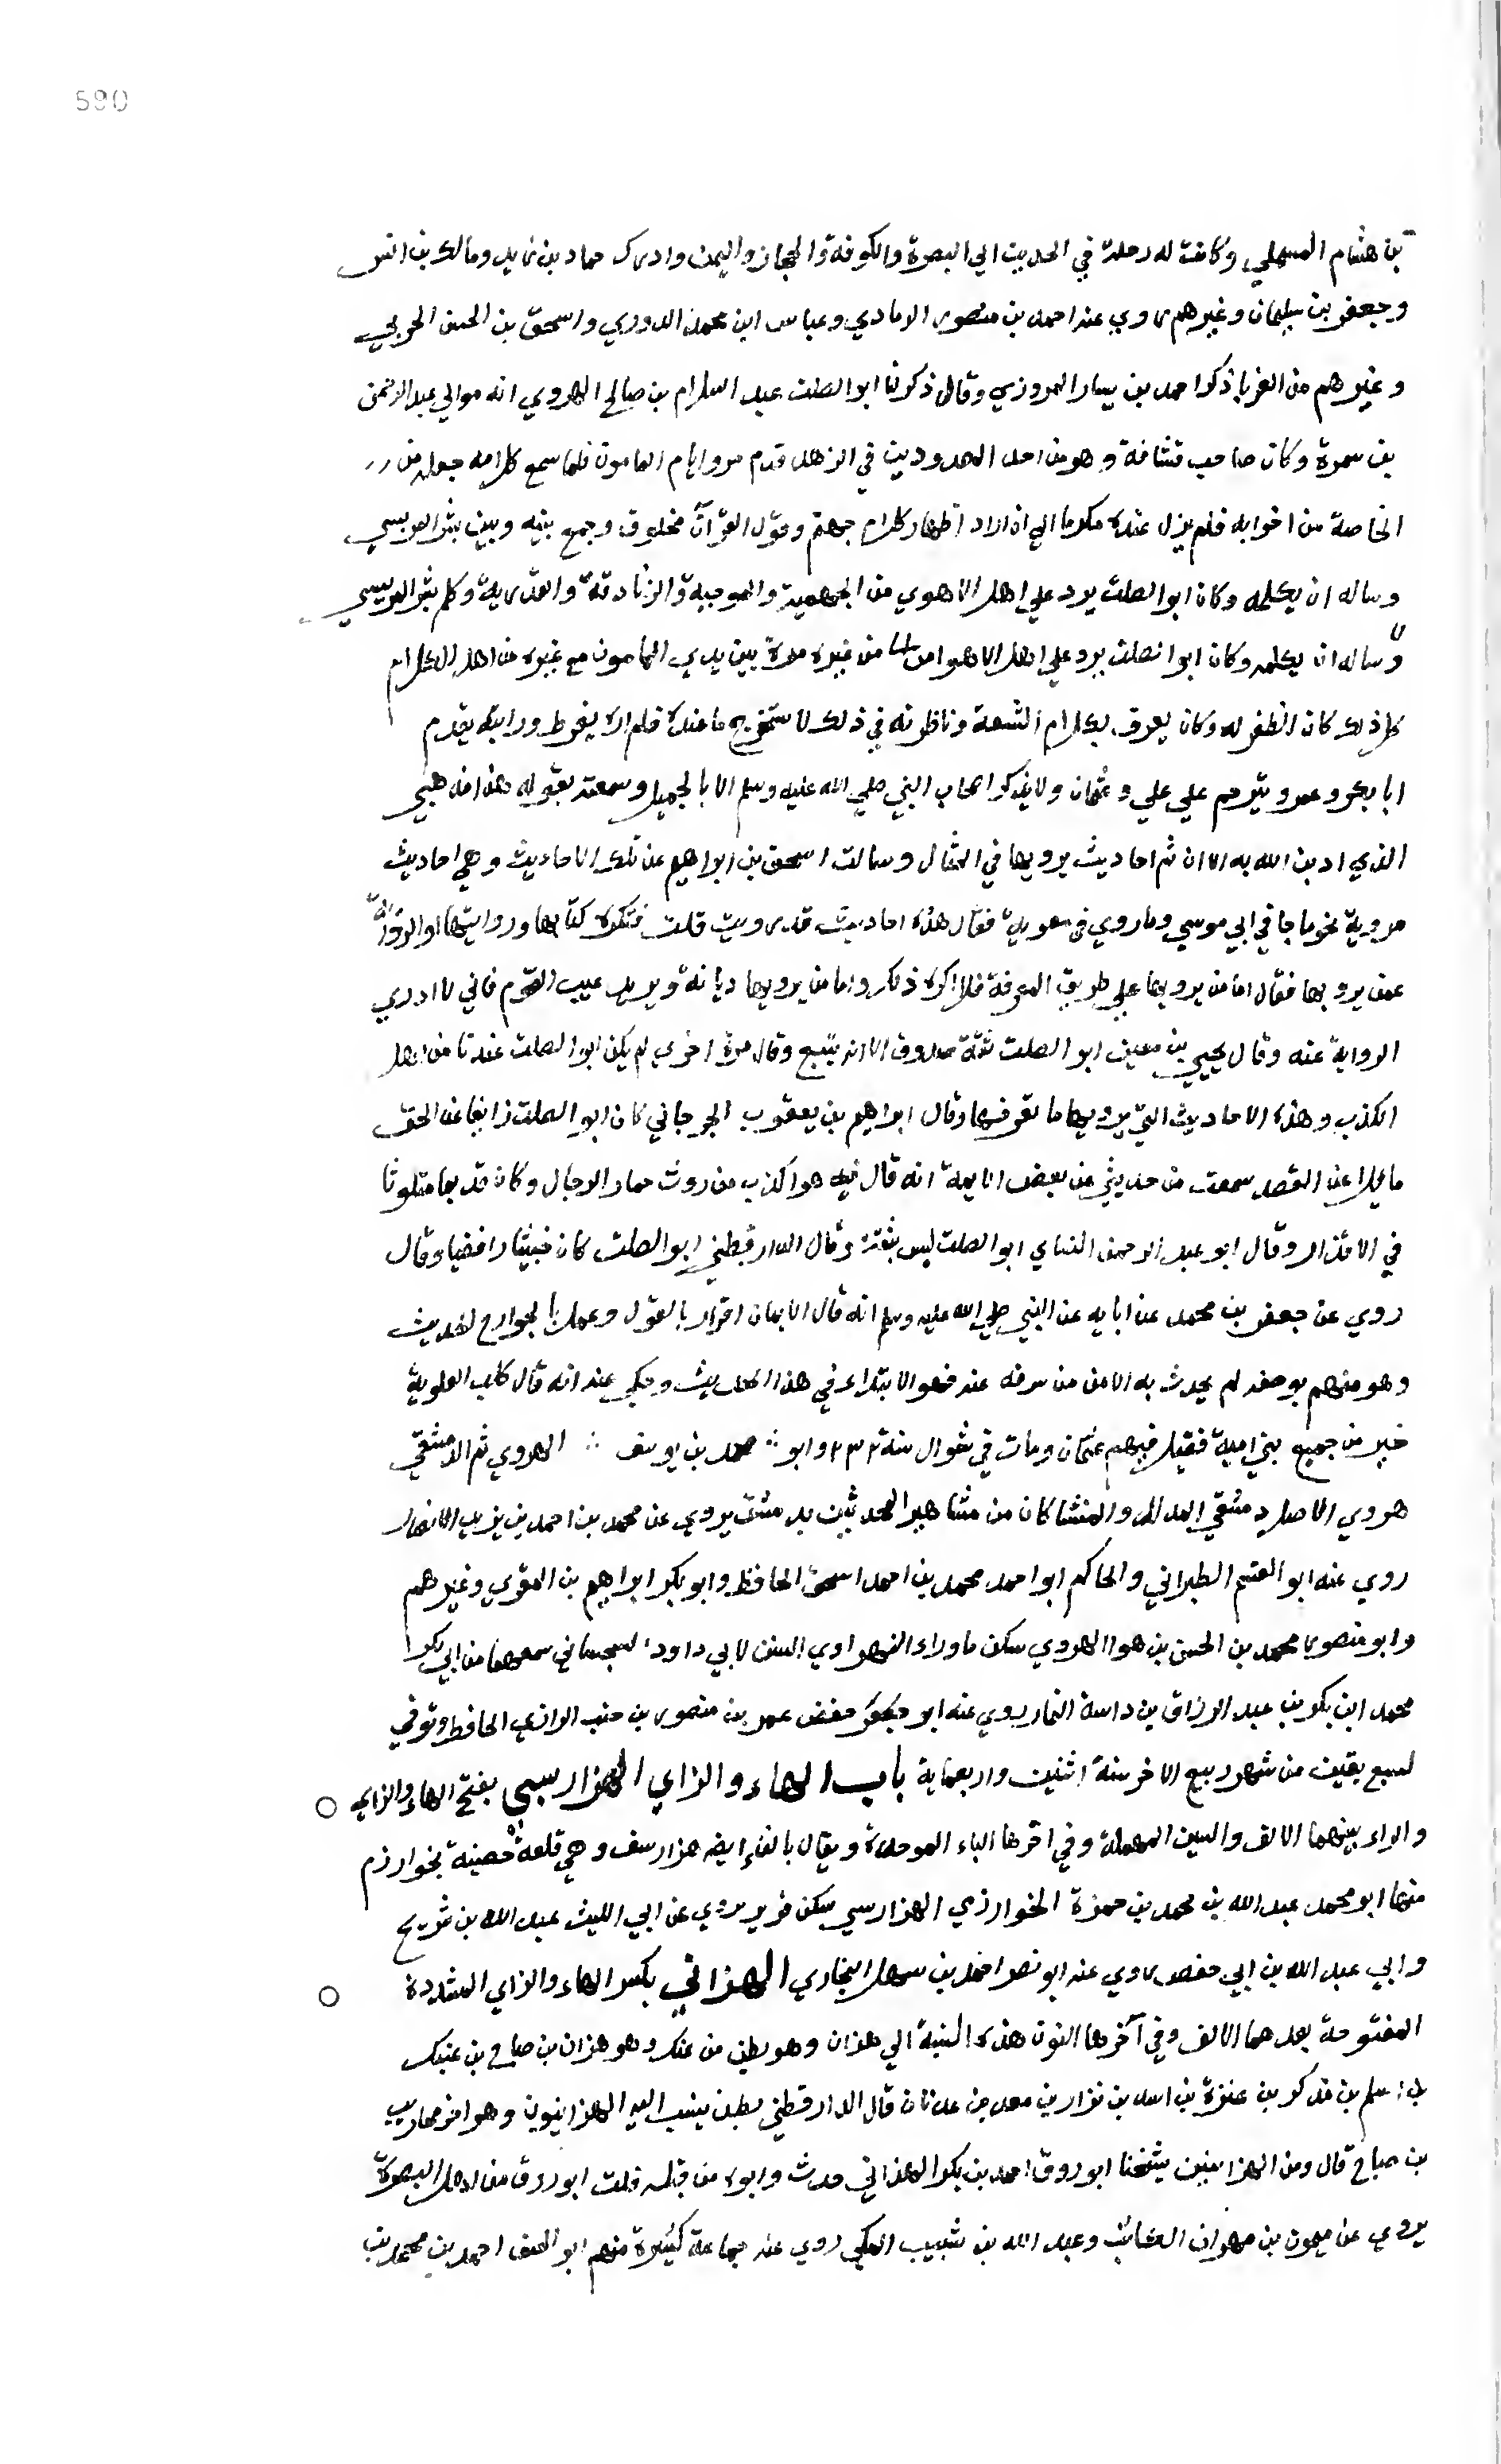 590
بن هشام المسهلي وكانت له رحلة في الحديث الي البصرة والكوفة والحجاز واليمن وادرك حماد بن زيد ومالك بن انس
وجعفر بن سليمان وغيرهم روي عنه احمد بن منصور الرمادي وعباس ابن محمد الدوري واسحق بن الحسن الحربي
وغيرهم من الغربا ذكره احمد بن سيار المروزي وقال ذكر لنا ابو الصلت عبد السلام بن صالح الهروي انه موالي عبد الرحمن
بن سمرة وكان صاحب قشافة وهو من احد المعدودين في الزهد قدم مرو ايام المامون فلما سمع كلامه جعله من
الخاصة من اخوانه فلم يزل عنده مكرما الي ان اراد اظهار كلام جهم وقول القرآن مخلوق وجمع بينه وبين بشر المريسي
وساله ان يكلمه وكان ابو الصلت يرد علي اهل الاهوي من الجهمية والموجبة والزنادقة والقدرية وكلم بشر المريسي
وساله ان يكلمه وكان ابو الصلت يرد علي اهل الاهوا من غيره مرة بين يدي المامون مع غيره من اهل الكلام
كل ذلك كان الظفر له وكان يعرف بكلام الشيعة وناظرته في ذلك لاستخرج ما عنده فلم اره يفرط ورايته يقدم
ابا بكر وعمر ويترحم علي علي وعثمان ولا يذكر اصحاب النبي صلي الله عليه وسلم الا بالجميل وسمعته يقول هذا مذهبي
الذي ادين الله به الا ان ثم احاديث يرويها في المثال وسالت اسحق بن ابراهيم عن تلك الاحاديث وهي احاديث
مروية نحو ما جا في ابي موسي وما روي في معوية فقال هذه احاديث قد رويت قلت فتكره كتابها وروايتها او الرواية
عمن يرويها فقال اما من يرويها علي طريق المعرفة فلا اكره ذلك واما من يرويها ديانة ويريد عيب القوم فاني لا ادري
الرواية عنه وقال يحيي بن معين ابو الصلت ثقة صدوق الا انه يتشيع وقال مرة اخري لم يكن ابو الصلت عندنا من اهل
الكذب وهذه الاحاديث التي يرويها ما نعرفها وقال ابراهيم بن يعقوب الجرجاني كان ابو الصلت زايغا عن الحق
مايلا عن القصد سمعت من حدثني عن بعض الايمة انه قال فيه هو اكذب من روث حمار الدجال وكان قديما متلوثا
في الاقذار وقال ابو عبد الرحمن النساي ابو الصلت ليس بثقة وقال الدارقطني ابو الصلت كان خبيثا رافضيا وقال
روي عن جعفر بن محمد عن ابايه عن النبي صلي الله عليه وسلم انه قال الايمان اقرار بالقول وعمل بالجوارح الحديث
وهو متهم بوضعه لم يحدث به الا من سرقه عنه فهو الابتداء في هذا الحديث وحكي عنه انه قال كلب العلوية
خير من جميع بني امية فقيل فيهم عثمان ومات في شوال سنة ٢٣٢ وابو محمد بن يوسف الهروي ثم الدمشقي
هروي الاصل دمشقي المولد والمنشا كان من مشاهير المحدثين بدمشق يروي عن محمد بن احمد بن
روي عنه ابو القسم الطبراني والحاكم ابو احمد محمد بن احمد اسحق الحافظ وابو بكر ابراهيم بن المقري وغيرهم
وابو منصور محمد بن الحسن بن هوا الهروي سكن ما وراء النهر اوي السنن لابي داود السجستاني سمعها من ابي بكر
محمد ابن بكر بن عبد الرزاق بن داسة التمار روي عنه ابو حفص عمر بن منصور بن الحافظ وتوفي
لسبع بقين من شهر ربيع الاخر سنة اثنين واربعماية باب الهاء والزاي الهزارسبي بفتح الهاء والزاي
والراء بينهما الالف والسين المهملة وفي اخرها الباء الموحدة ويقال بالفاء ايضه هزارسف وهي قلعة حصينة بخوارزم
منها ابو محمد عبد الله بن محمد بن حمزة الخوارزمي الهزارسي سكن فربر يروي عن ابي الليث عبد الله بن شريح
وابي عبد الله بن ابي حفص روي عنه ابو نصر احمد بن سهل البخاري الهزاني بكسر الهاء والزاي المشددة
المفتوحة بعدهما الالف وفي آخرها النون هذه النسبة الي هزان وهو بطن من عنك وهو هزان بن صباح بن عتيك
بن اسلم بن يذكر بن عنزة بن اسد بن نزار بن معد بن عدنان قال الدارقطني بطن ينسب اليه الهزانيون وهو اخو محارب
بن صباح قال ومن الهزانيين شيخنا ابو روق احمد بن بكر الهزاني حدث وابوه من قبله قلت ابو روق من اهل البصرة
يروي عن ميمون بن مهران وعبد الله بن شبيب المكي روي عنه جماعة كثيرة منهم ابو الحسن احمد بن محمد بن